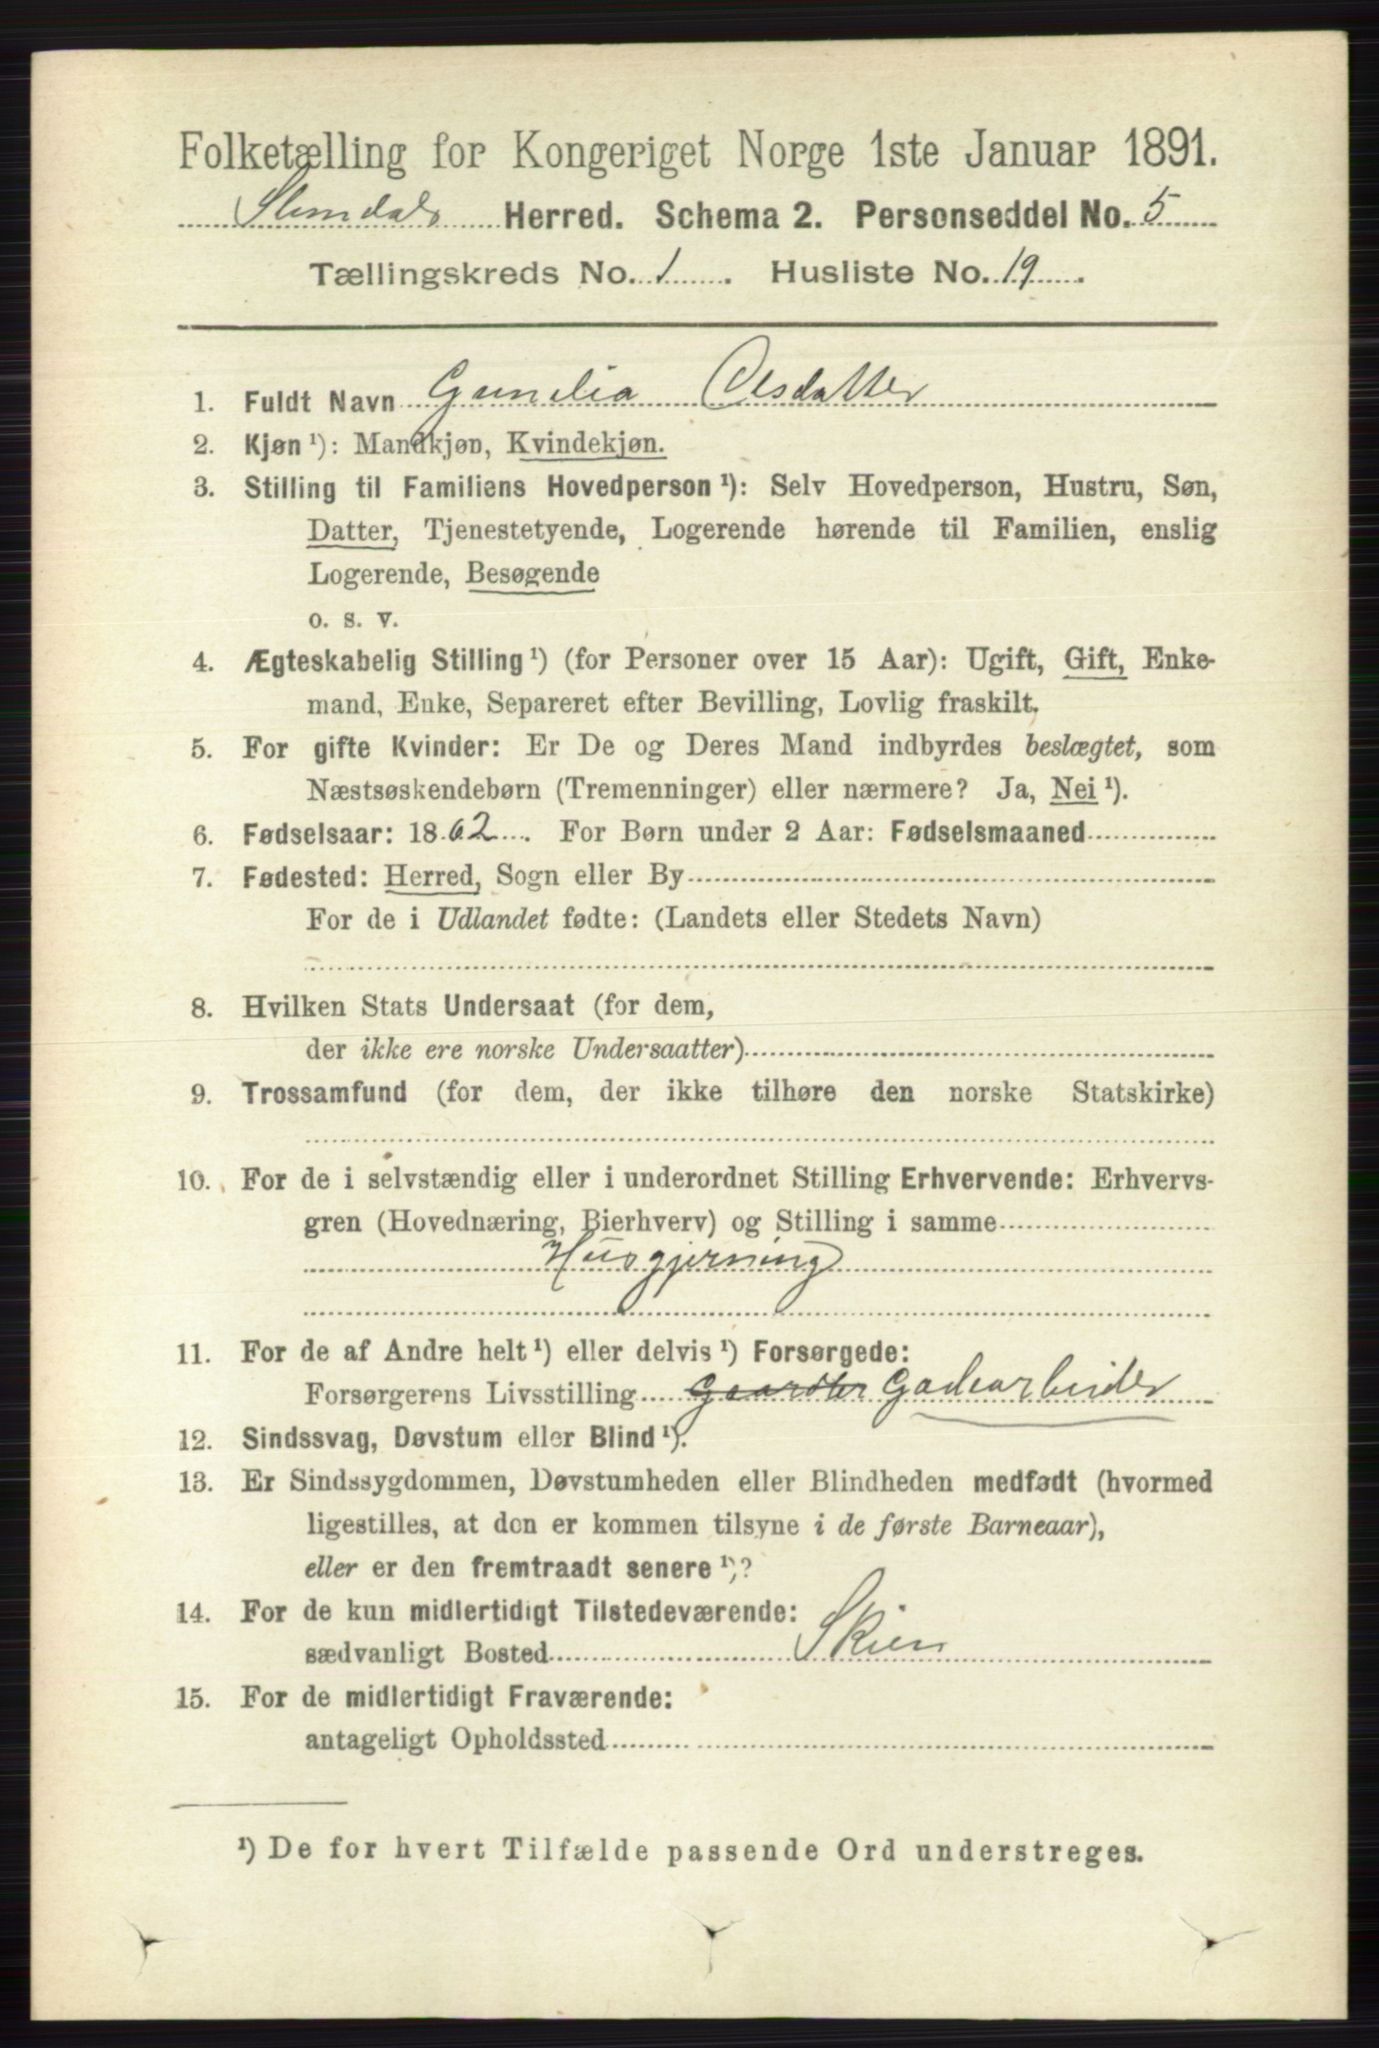 Folketælling for Kongeriget Norge 1ste Januar 1891.
Slemdals Herred. Schema 2. Personseddel No. 5
Tællingskreds No. 1. Husliste No. 19.
1. Fuldt Navn Gunelia Olsdatter
2. Kjøn ¹): Mandkjøn, Kvindekjøn.
3. Stilling til Familiens Hovedperson ¹): Selv Hovedperson, Hustru, Søn,
Datter, Tjenestetyende, Logerende hørende til Familien, enslig
Logerende, Besøgende
o. s. v.
4. Ægteskabelig Stilling ¹) (for Personer over 15 Aar): Ugift, Gift, Enke-
mand, Enke, Separeret efter Bevilling, Lovlig fraskilt.
5. For gifte Kvinder: Er De og Deres Mand indbyrdes beslægtet, som
Næstsøskendebørn (Tremenninger) eller nærmere? Ja, Nei ¹).
6. Fødselsaar: 1862. For Børn under 2 Aar: Fødselsmaaned
7. Fødested: Herred, Sogn eller By
For de i Udlandet fødte: (Landets eller Stedets Navn)
8. Hvilken Stats Undersaat (for dem,
der ikke ere norske Undersaatter)
9. Trossamfund (for dem, der ikke tilhøre den norske Statskirke)
10. For de i selvstændig eller i underordnet Stilling Erhvervende: Erhvervs-
gren (Hovednæring, Bierhverv) og Stilling i samme
Husgjerning
11. For de af Andre helt ¹) eller delvis ¹) Forsørgede:
Forsørgerens Livsstilling Gaardbr Gadearbeider
12. Sindssvag, Døvstum eller Blind ¹).
13. Er Sindssygdommen, Døvstumheden eller Blindheden medfødt (hvormed
ligestilles, at den er kommen tilsyne i de første Barneaar),
eller er den fremtraadt senere ¹)?
14. For de kun midlertidigt Tilstedeværende:
sædvanligt Bosted Skien
15. For de midlertidigt Fraværende:
antageligt Opholdssted
¹) De for hvert Tilfælde passende Ord understreges.